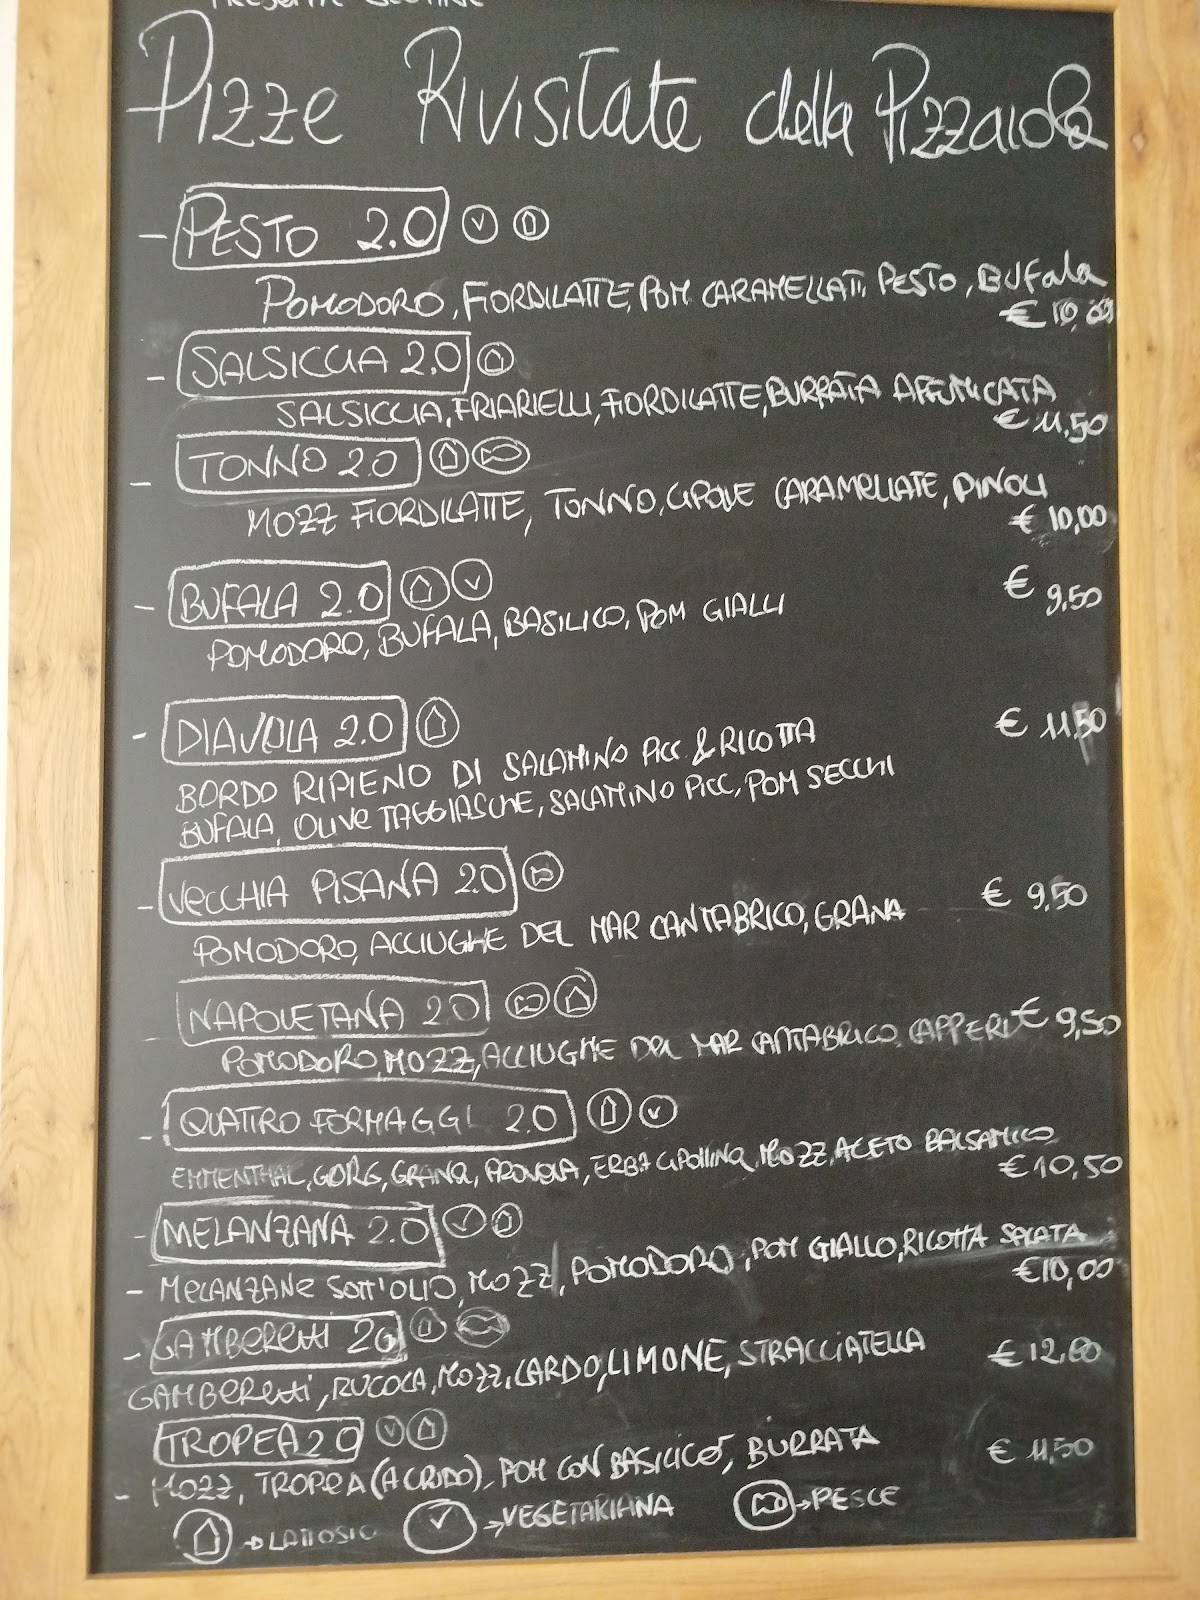 Pizze Rivisitate della Pizzaiola
- PESTO 2.0
POMODORO, FIORDILATTE, POM CARAMELLATI, PESTO, BUFala
€ 10,00
- SALSICCIA 2.0
SALSICCIA, FRIARIELLI, FIORDILATTE, BURRATA AFFUMICATA
€ 11,50
- TONNO 2.0
MOZZ FIORDILATTE, TONNO, CIPOLLE CARAMELLATE, PINOLI
€ 10,00
- BUFALA 2.0
€ 9,50
POMODORO, BUFALA, BASILICO, POM GIALLI
- DIAVOLA 2.0
€ 11,50
BORDO RIPIENO DI SALAMINO PICC & RICOTTA
BUFALA, OLIVE TAGGIASCHE, SALAMINO PICC, POM SECCHI
- VeCCHIA PISANA 2.0
€ 9,50
POMODORO, ACCIUGHE DEL MAR CANTABRICO, GRANA
- NAPOLETANA 2.0
POMODORO, MOZZ, ACCIUGHE DEL MAR CANTABRICO, CAPPERI € 9,50
- QUATTRO FORMAGGI 2.0
EMMENTHAL, GORG, GRANA, PROVOLA, ERBA CIPOLLINA, MOZZ, ACETO BALSAMICO
€ 10,50
- MELANZANA 2.0
- MELANZANE SOTT'OLIO, MOZZ, POMODORO, POM GIALLO, RICOTTA SALATA
€ 10,00
- GAMBERetti 2.0
€ 12,00
GAMBERetti, RUCOLA, MOZZ, LARDO, LIMONE, STRACCIATELLA
TROPEA 2.0
€ 11,50
- MOZZ, TROPEA (A CRUDO), POM CON BASILICO, BURRATA
→ LATTOSIO → VEGETARIANA → PESCE